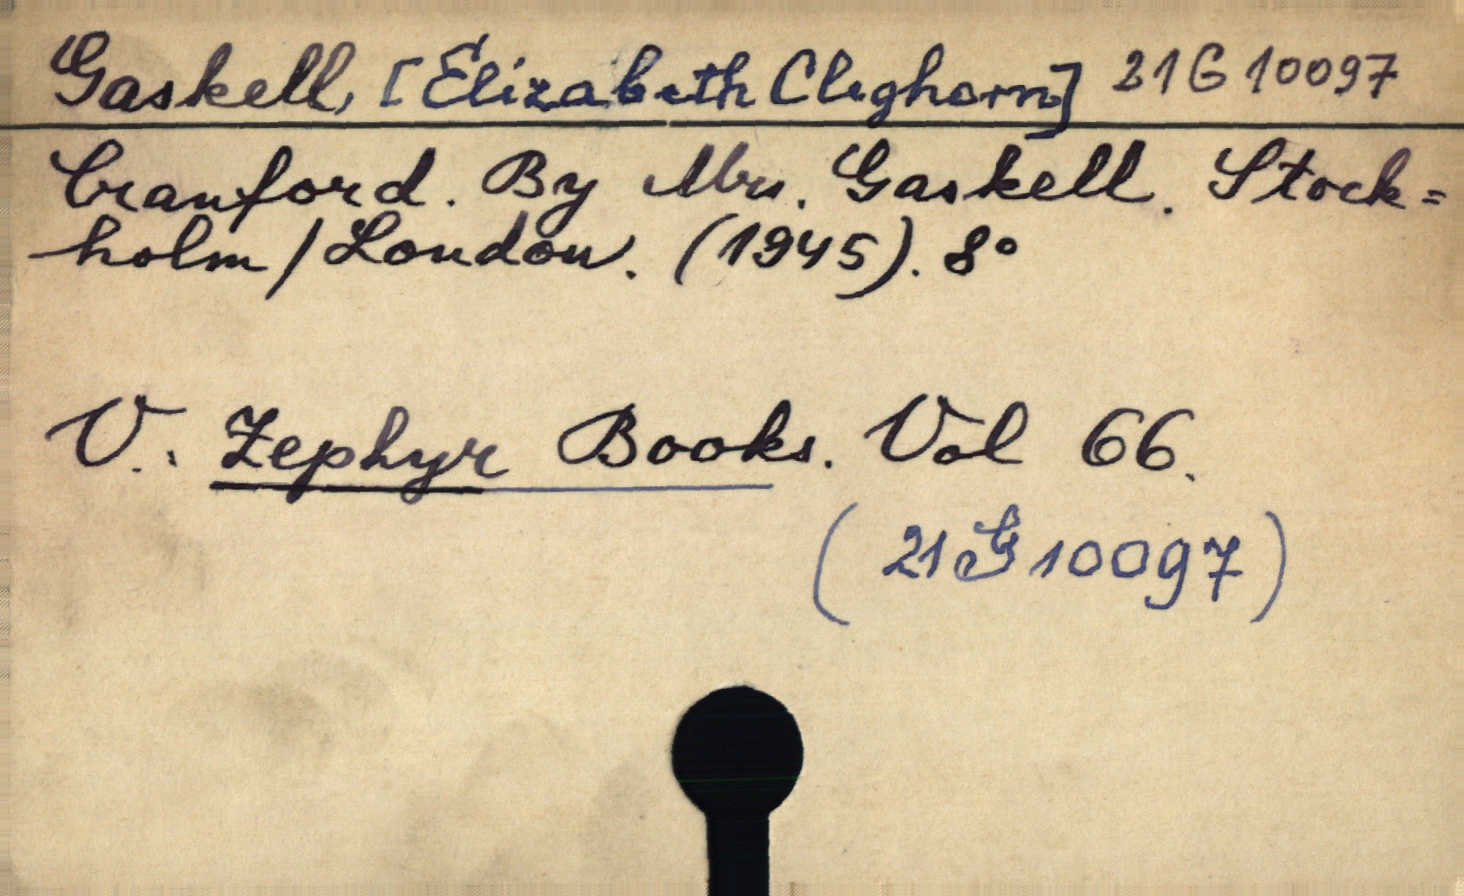 Gaskell, [Elizabeth Cleghorn] 21G10097
Cranford. By Mrs. Gaskell. Stock=
holm/London. (1945). 8°
V.: Zephyr Books. Vol 66.
(21G10097)